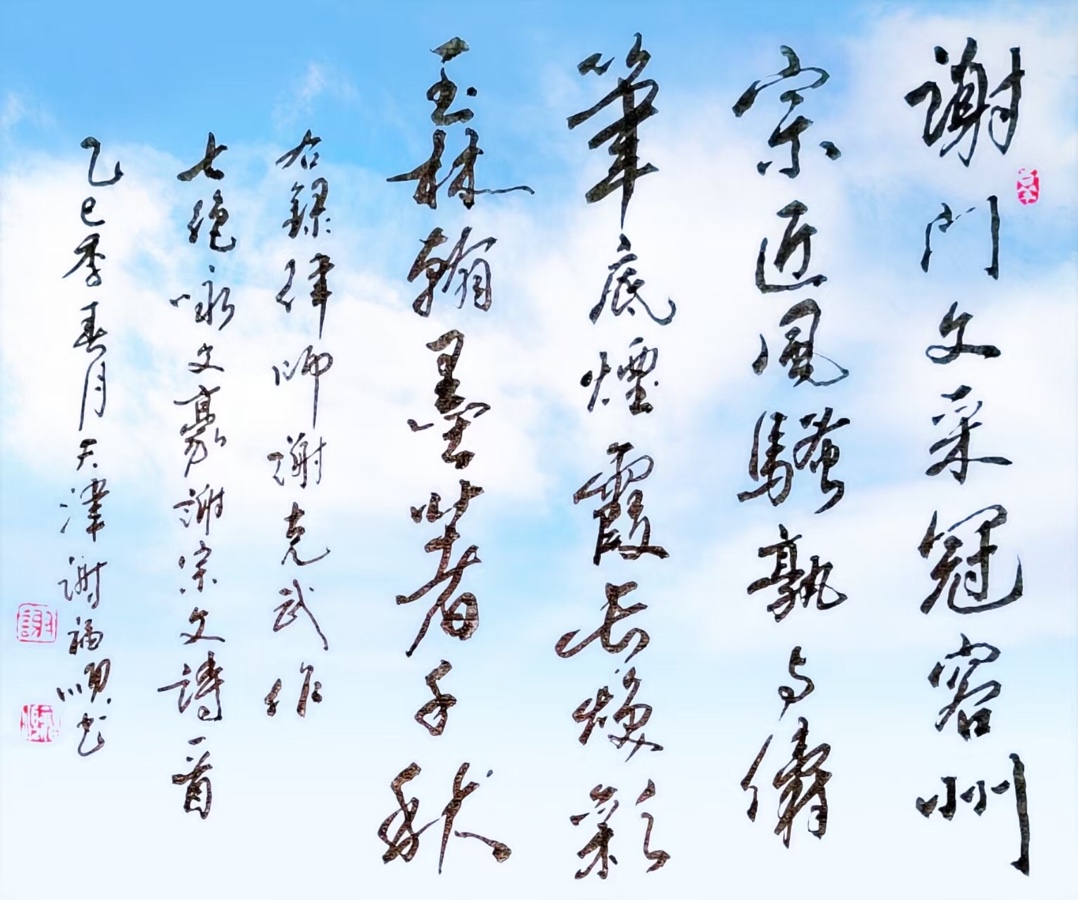 謝門文采冠容州
宗近風騷孰与儔
筆底煙霞長煥彩
玉林翰墨著千秋
右録律师謝克武作
七绝咏文豪谢宗文詩一首
乙巳季春月天津谢福順书